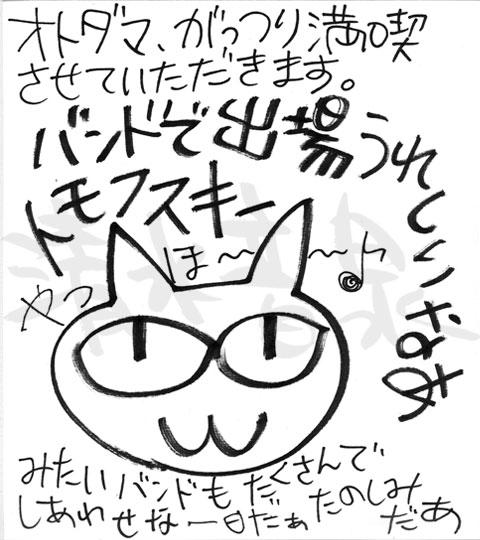 オトダマ、がっつり満喫
させていただきます。
バンドで出場うれしいなあ
トモフスキー
やっほ〜〜♪
みたいバンドもたくさんで
しあわせな一日だぁ たのしみだあ
清水音泉